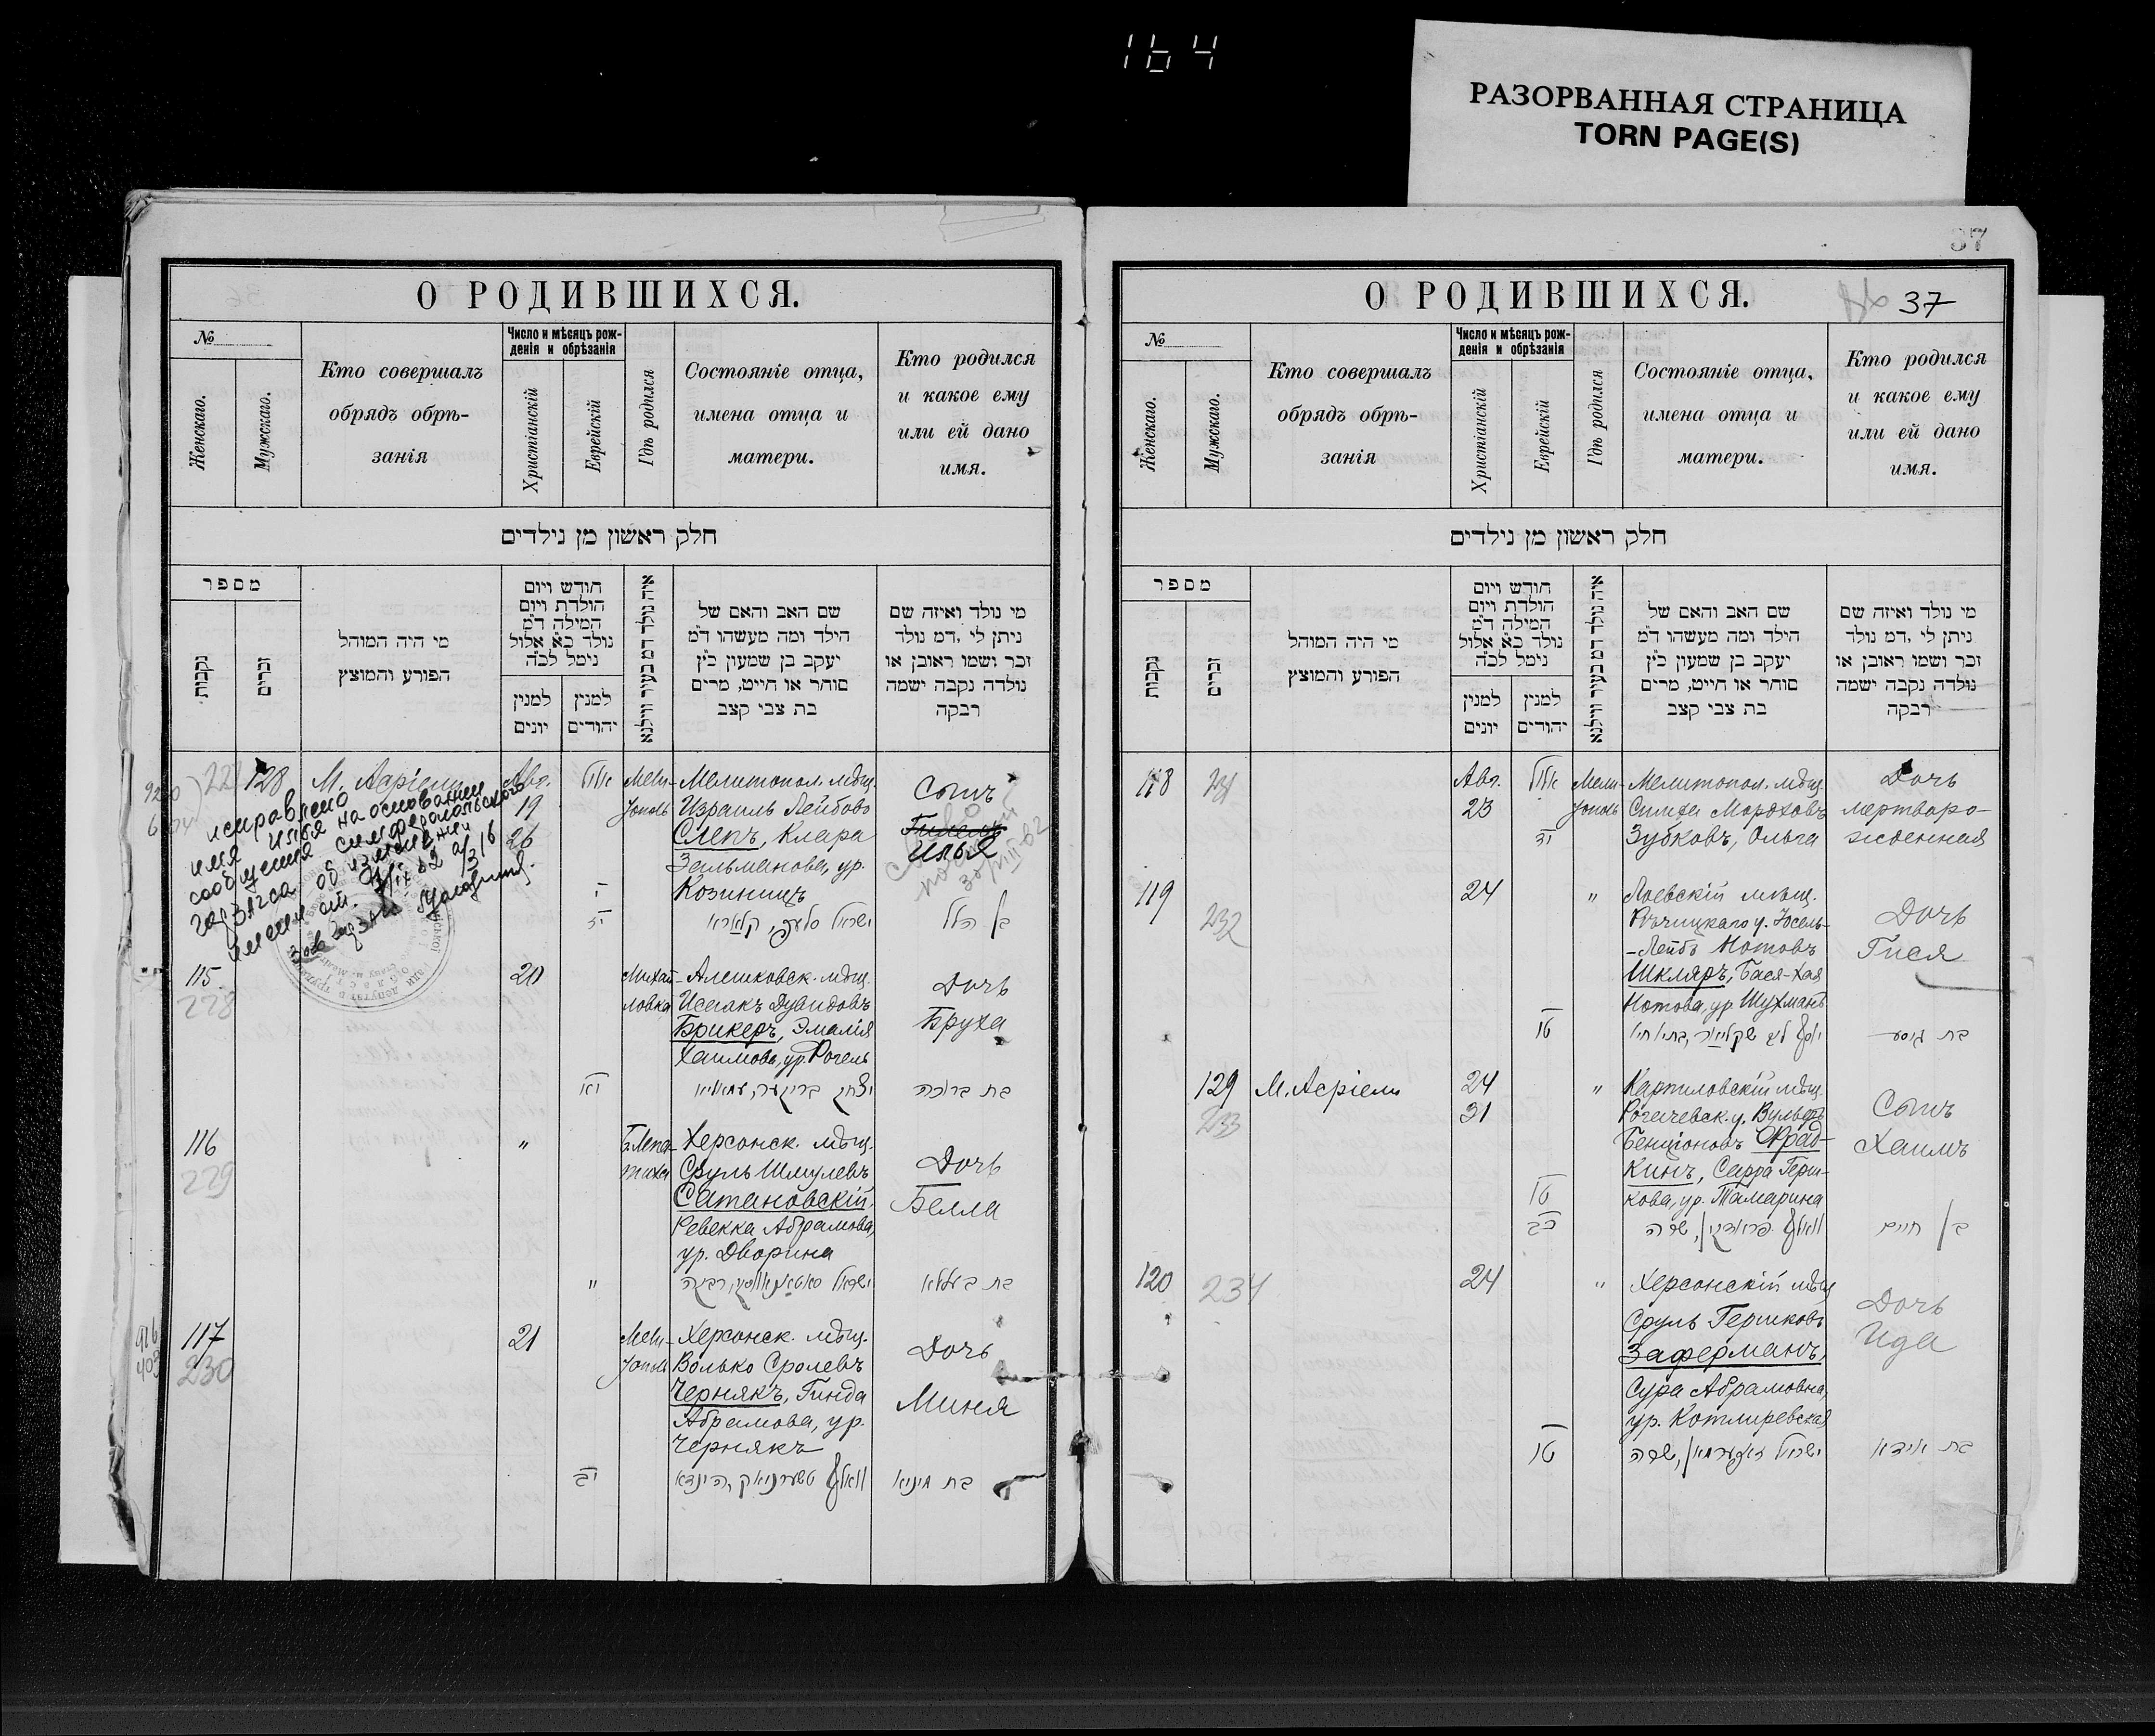 164
РАЗОРВАННАЯ СТРАНИЦА
TORN PAGE(S)
О РОДИВШИХСЯ.
№
Женскаго.
Мужскаго.
Кто совершалъ
обрядъ обрѣ-
занія
Число и мѣсяцъ рож-
денія и обрѣзанія
Христіанскій
Еврейскій
Гдѣ родился
Состояніе отца,
имена отца и
матери.
Кто родился
и какое ему
или ей дано
имя.
חלק ראשון מן נילדים
מספר
נקבות
זכרים
מי היה המוהל
הפורע והמוצץ
חודש ויום
הולדת ויום
המילה ד״מ
נולד כא אלול
נימל לכ״ה
למנין
יונים
למנין
יהודים
שם האב והאם של
הילד ומה מעשהו ד״מ
יעקב בן שמעון כ״ץ
סוחר או חייט, מרים
בת צבי קצב
מי נולד ואיזה שם
ניתן לי ,דמ נולד
זכר ושמו ראובן או
נולדה נקבה ישמה
רבקה
128
М. Асріелъ
Авг.
19
26
אלול
Мели-
тополь
Мелитопол. мѣщ.
Израиль Лейбовъ
Слепъ, Клара
Зельманова, ур.
Козиницъ
Сынъ
Гилель
Илья
исправлено
имя Илья на основании
сообщения симферопольского
горзагса об изменении
имени от
בן הלל
115
228
20
Михай-
ловка
Алешковск. мѣщ.
Исаакъ Дувидовъ
Брикеръ, Эмалія
Хаимова, ур. Рогель
Дочь
Бруха
בת ברוכה
116
229
"
Б. Лепа-
тиха
Херсонск. мѣщ.
Сруль Шмулевъ
Сатановскій,
Ревекка Абрамова,
ур. Дворина
Дочь
Белла
"
בת בעללא
916
403
117
230
21
Мели-
тополь
Херсонск. мѣщ.
Волько Сролевъ
Чернякъ, Гинда
Абрамова, ур.
Чернякъ
Дочь
Миня
יב
בת מיניא
37
О РОДИВШИХСЯ.
37
№
Женскаго.
Мужскаго.
Кто совершалъ
обрядъ обрѣ-
занія
Число и мѣсяцъ рож-
денія и обрѣзанія
Христіанскій
Еврейскій
Гдѣ родился
Состояніе отца,
имена отца и
матери.
Кто родился
и какое ему
или ей дано
имя.
חלק ראשון מן נילדים
מספר
נקבות
זכרים
מי היה המוהל
הפורע והמוצץ
חודש ויום
הולדת ויום
המילה ד״מ
נולד כא אלול
נימל לכ״ה
למנין
יונים
למנין
יהודים
שם האב והאם של
הילד ומה מעשהו ד״מ
יעקב בן שמעון כ״ץ
סוחר או חייט, מרים
בת צבי קצב
מי נולד ואיזה שם
ניתן לי ,דמ נולד
זכר ושמו ראובן או
נולדה נקבה ישמה
רבקה
118
231
Авг.
23
אלול
יד
Мели-
тополь
Мелитопол. мѣщ.
Симха Мордховъ
Зубковъ, Ольга
Дочь
мертворо-
жденная
119
232
24
"
Лоевскій мѣщ.
Рѣчицкаго у. Іосель-
-Лейбъ Нотовъ
Шкляръ, Бася-Хая
Нотова, ур. Шухманъ
Дочь
Гися
טו
בת גיסע
129
233
М. Асріелъ
24
31
"
Карпиловскій мѣщ.
Рогачевск. у. Вульфъ
Бенціоновъ Фрад-
кинъ, Сарра Герш-
кова, ур. Тамарина
Сынъ
Хаимъ
טו
כב
בן חיים
120
234
24
"
Херсонскій мѣщ
Сруль Гершковъ
Заферманъ,
Сура Абрамовна,
ур. Котляревская
Дочь
Ида
טו
בת אידא